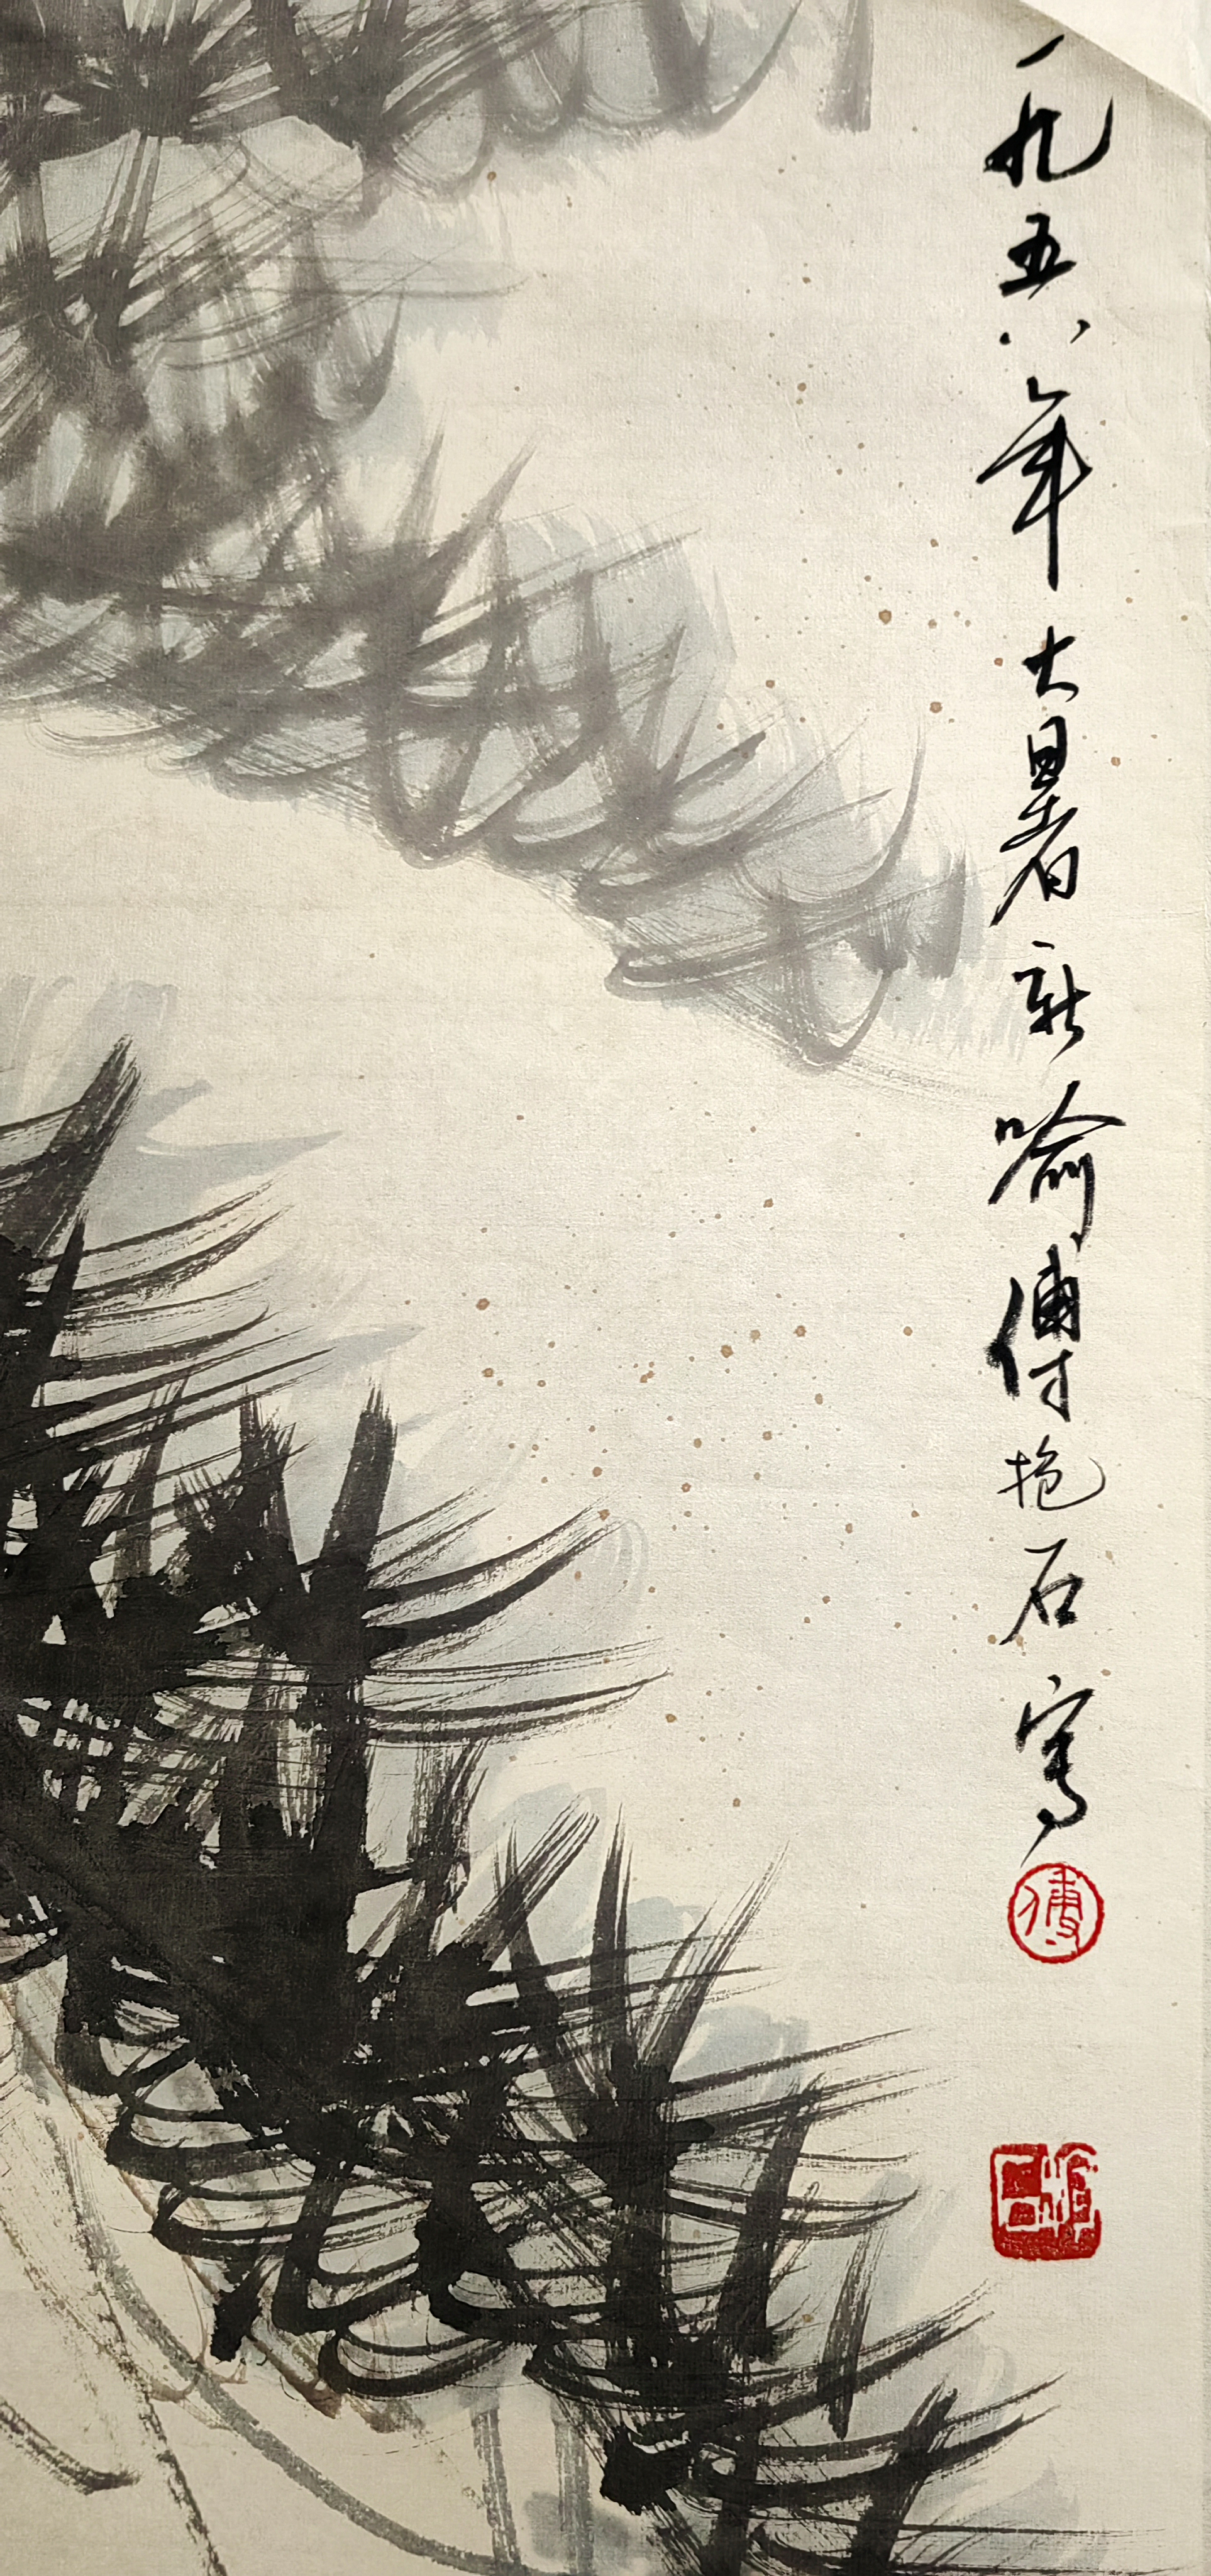 一九五八年大暑新喻傅抱石写
傅